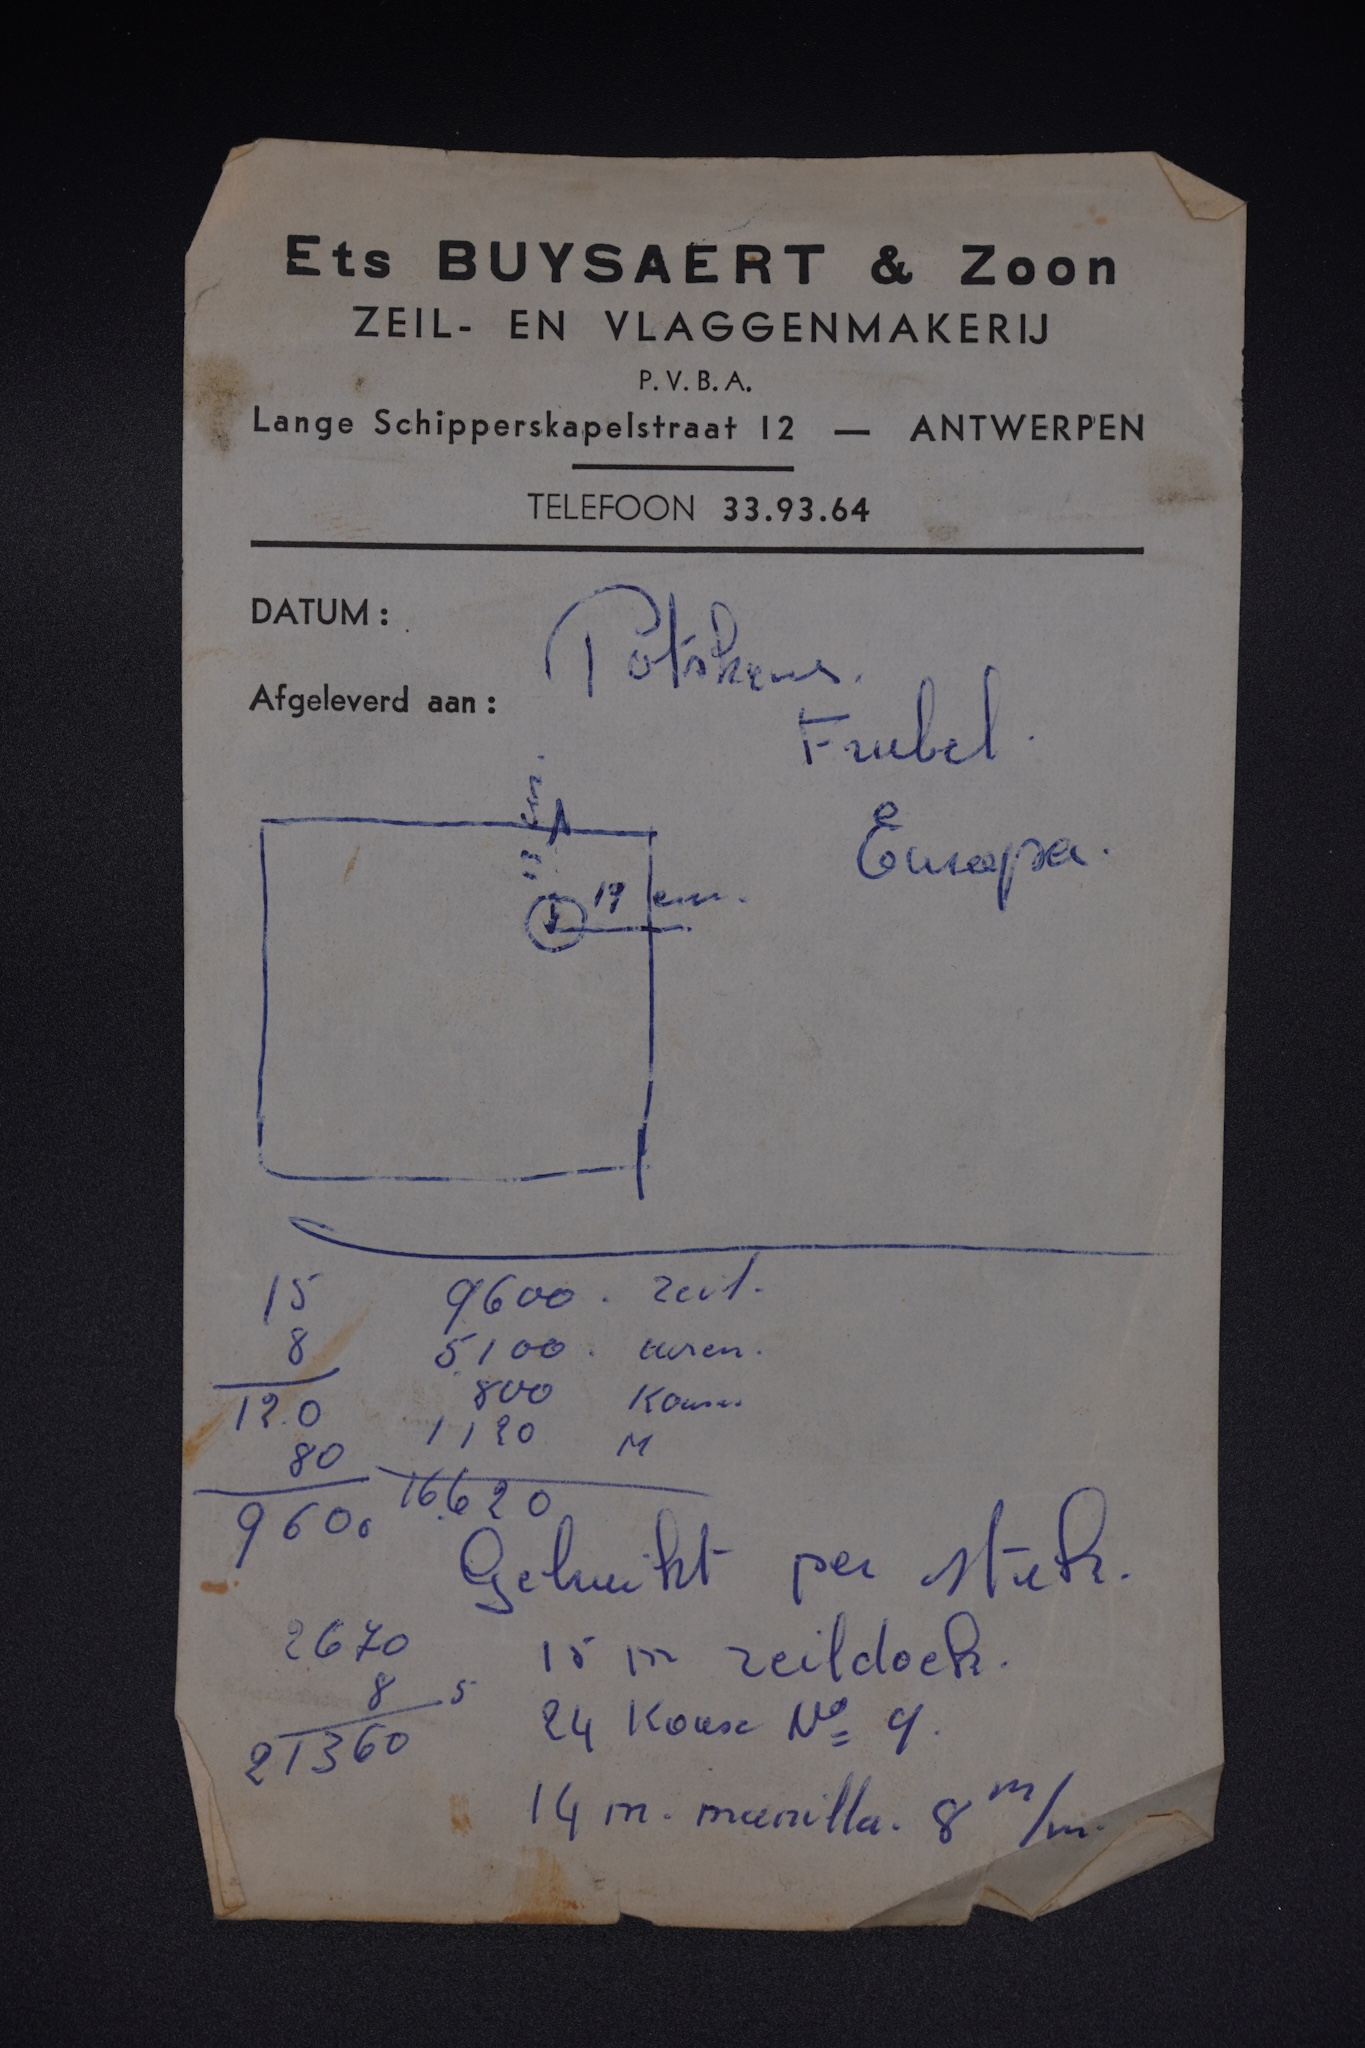 Ets BUYSAERT & Zoon
ZEIL- EN VLAGGENMAKERIJ
P. V. B. A.
Lange Schipperskapelstraat 12 — ANTWERPEN
TELEFOON 33.93.64
DATUM :
Afgeleverd aan :
Europa.
19 cm.
15 9600. zeil.
8 5100. uren.
120 800 Kous
80 1120 M
9600 16.620
Gebruikt per stuk.
2670 15 m zeildoek.
8 5 24 Kouse No 9.
21360
14 m. manilla. 8 m/m.